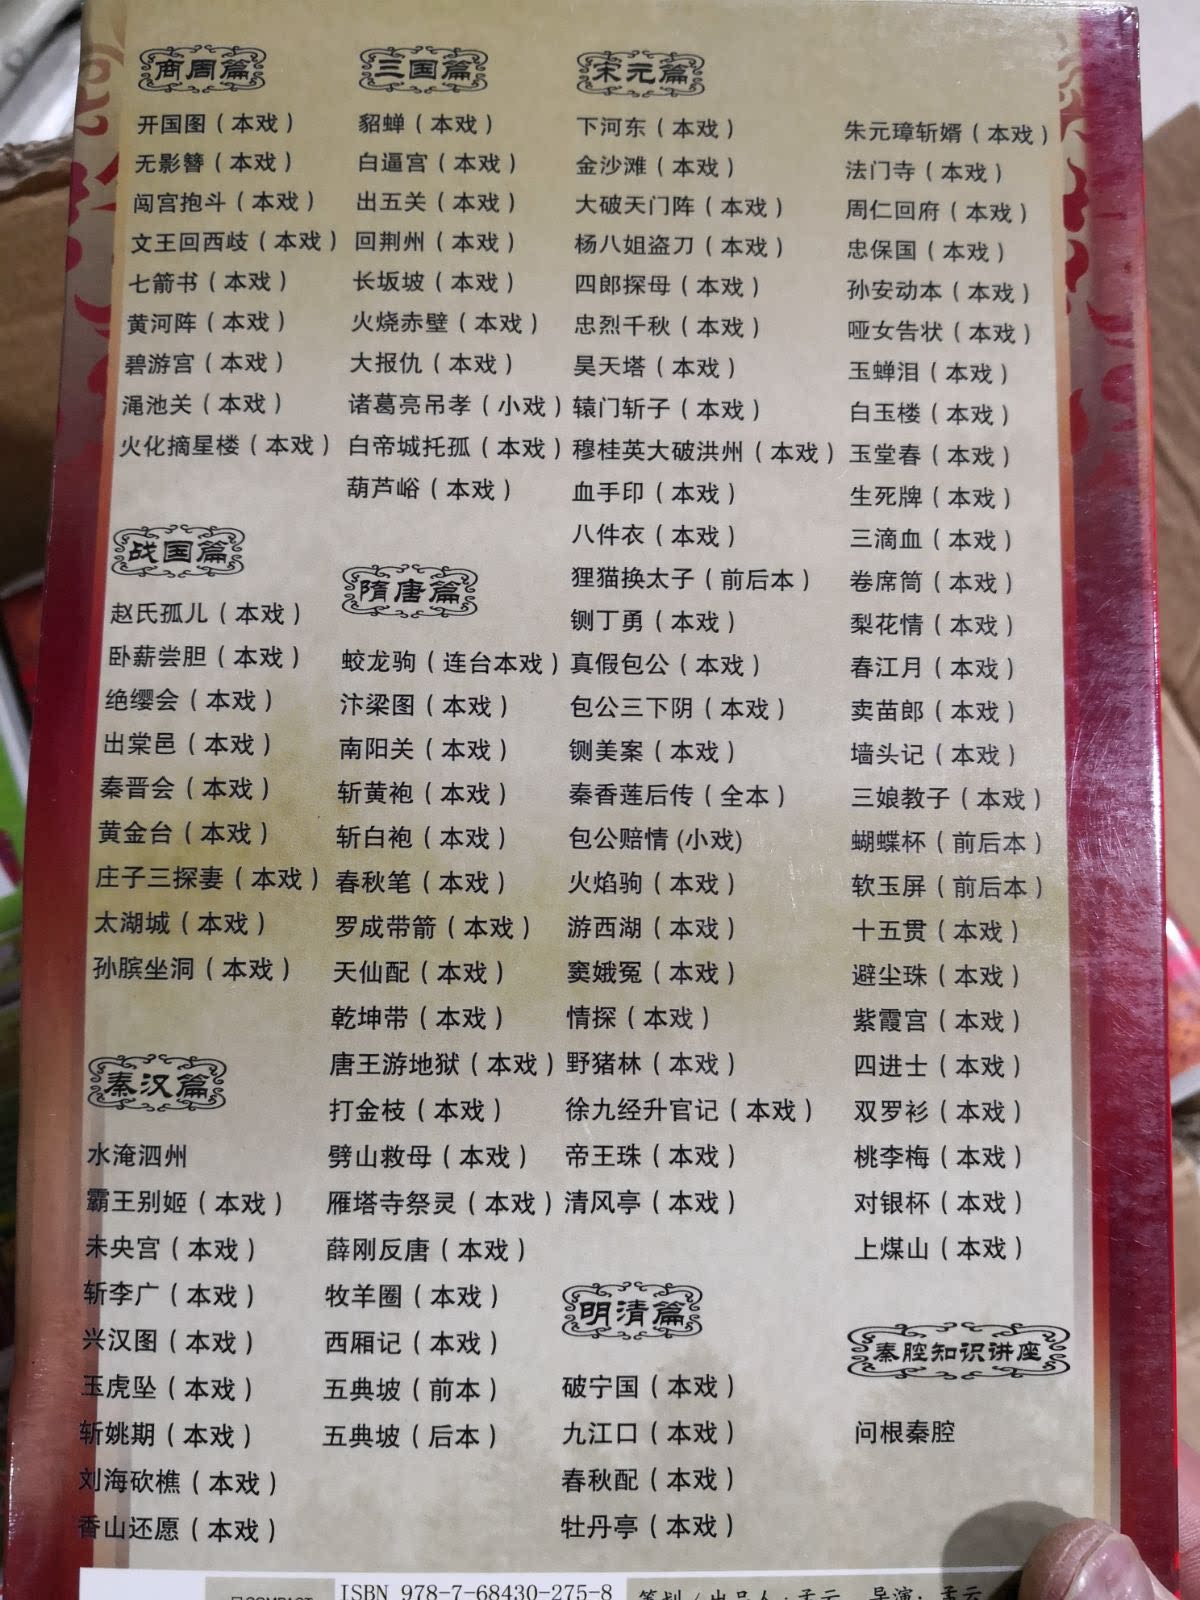 商周篇
开国图（本戏）
无影簪（本戏）
闯宫抱斗（本戏）
文王回西歧（本戏）
七箭书（本戏）
黄河阵（本戏）
碧游宫（本戏）
渑池关（本戏）
火化摘星楼（本戏）
战国篇
赵氏孤儿（本戏）
卧薪尝胆（本戏）
绝缨会（本戏）
出棠邑（本戏）
秦晋会（本戏）
黄金台（本戏）
庄子三探妻（本戏）
太湖城（本戏）
孙膑坐洞（本戏）
秦汉篇
水淹泗州
霸王别姬（本戏）
未央宫（本戏）
斩李广（本戏）
兴汉图（本戏）
玉虎坠（本戏）
斩姚期（本戏）
刘海砍樵（本戏）
香山还愿（本戏）
三国篇
貂蝉（本戏）
白逼宫（本戏）
出五关（本戏）
回荆州（本戏）
长坂坡（本戏）
火烧赤壁（本戏）
大报仇（本戏）
诸葛亮吊孝（小戏）
白帝城托孤（本戏）
葫芦峪（本戏）
隋唐篇
蛟龙驹（连台本戏）
汴梁图（本戏）
南阳关（本戏）
斩黄袍（本戏）
斩白袍（本戏）
春秋笔（本戏）
罗成带箭（本戏）
天仙配（本戏）
乾坤带（本戏）
唐王游地狱（本戏）
打金枝（本戏）
劈山救母（本戏）
雁塔寺祭灵（本戏）
薛刚反唐（本戏）
牧羊圈（本戏）
西厢记（本戏）
五典坡（前本）
五典坡（后本）
宋元篇
下河东（本戏）
金沙滩（本戏）
大破天门阵（本戏）
杨八姐盗刀（本戏）
四郎探母（本戏）
忠烈千秋（本戏）
昊天塔（本戏）
辕门斩子（本戏）
穆桂英大破洪州（本戏）
血手印（本戏）
八件衣（本戏）
狸猫换太子（前后本）
铡丁勇（本戏）
真假包公（本戏）
包公三下阴（本戏）
铡美案（本戏）
秦香莲后传（全本）
包公赔情(小戏)
火焰驹（本戏）
游西湖（本戏）
窦娥冤（本戏）
情探（本戏）
野猪林（本戏）
徐九经升官记（本戏）
帝王珠（本戏）
清风亭（本戏）
明清篇
破宁国（本戏）
九江口（本戏）
春秋配（本戏）
牡丹亭（本戏）
朱元璋斩婿（本戏）
法门寺（本戏）
周仁回府（本戏）
忠保国（本戏）
孙安动本（本戏）
哑女告状（本戏）
玉蝉泪（本戏）
白玉楼（本戏）
玉堂春（本戏）
生死牌（本戏）
三滴血（本戏）
卷席筒（本戏）
梨花情（本戏）
春江月（本戏）
卖苗郎（本戏）
墙头记（本戏）
三娘教子（本戏）
蝴蝶杯（前后本）
软玉屏（前后本）
十五贯（本戏）
避尘珠（本戏）
紫霞宫（本戏）
四进士（本戏）
双罗衫（本戏）
桃李梅（本戏）
对银杯（本戏）
上煤山（本戏）
秦腔知识讲座
问根秦腔
COMPACT
ISBN 978-7-68430-275-8
策划/出品人:孟云 导演:孟云